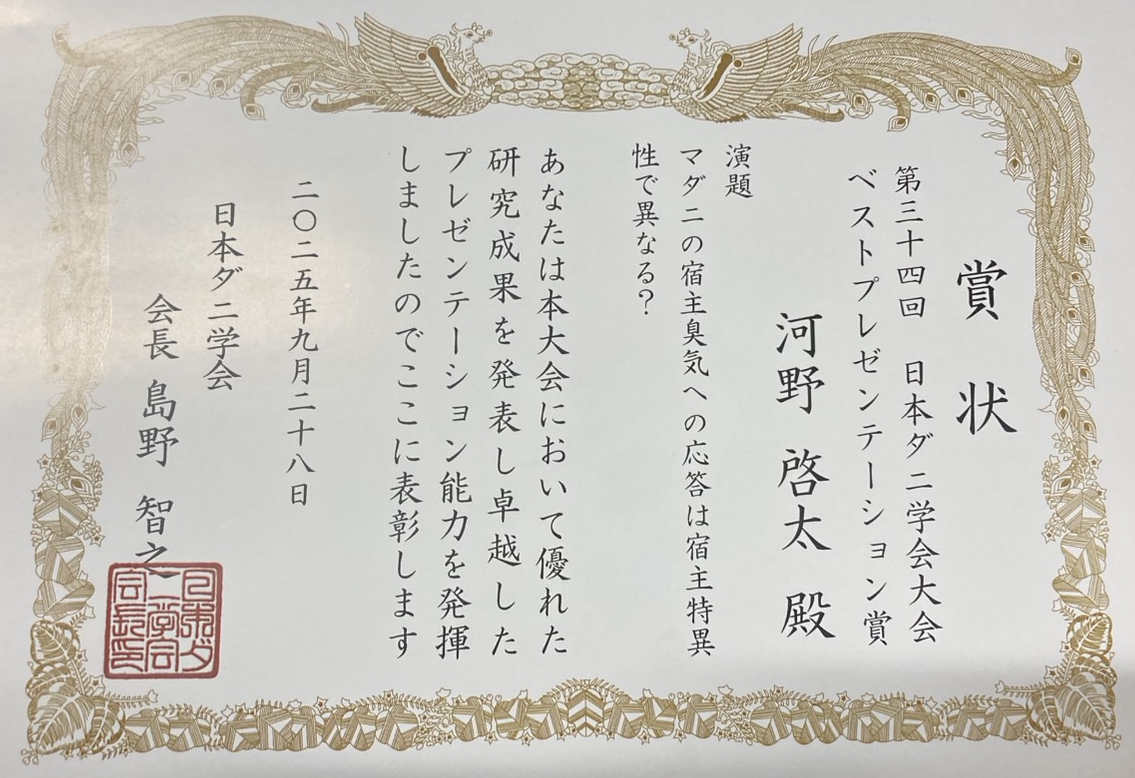 賞状
第三十四回 日本ダニ学会大会
ベストプレゼンテーション賞
河野 啓太 殿
演題
マダニの宿主臭気への応答は宿主特異
性で異なる？
あなたは本大会において優れた
研究成果を発表し卓越した
プレゼンテーション能力を発揮
しましたのでここに表彰します
二〇二五年九月二十八日
日本ダニ学会
会長 島野 智之
日本ダニ学会会長印